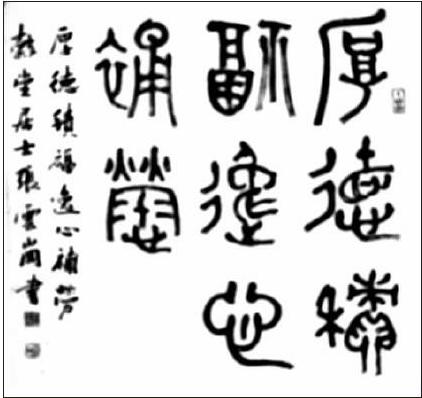 厚德積
福逸心
補勞
厚德積福逸心補勞
堂居士張雲崗書